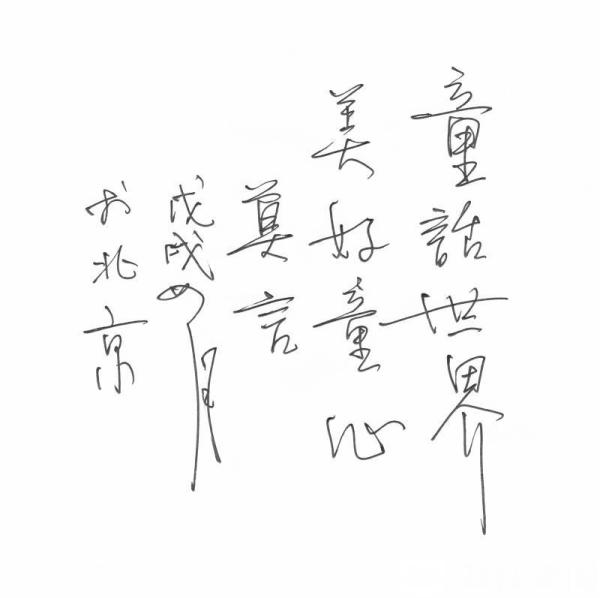 童話世界
美好童心
莫言
戊戌月
於北京